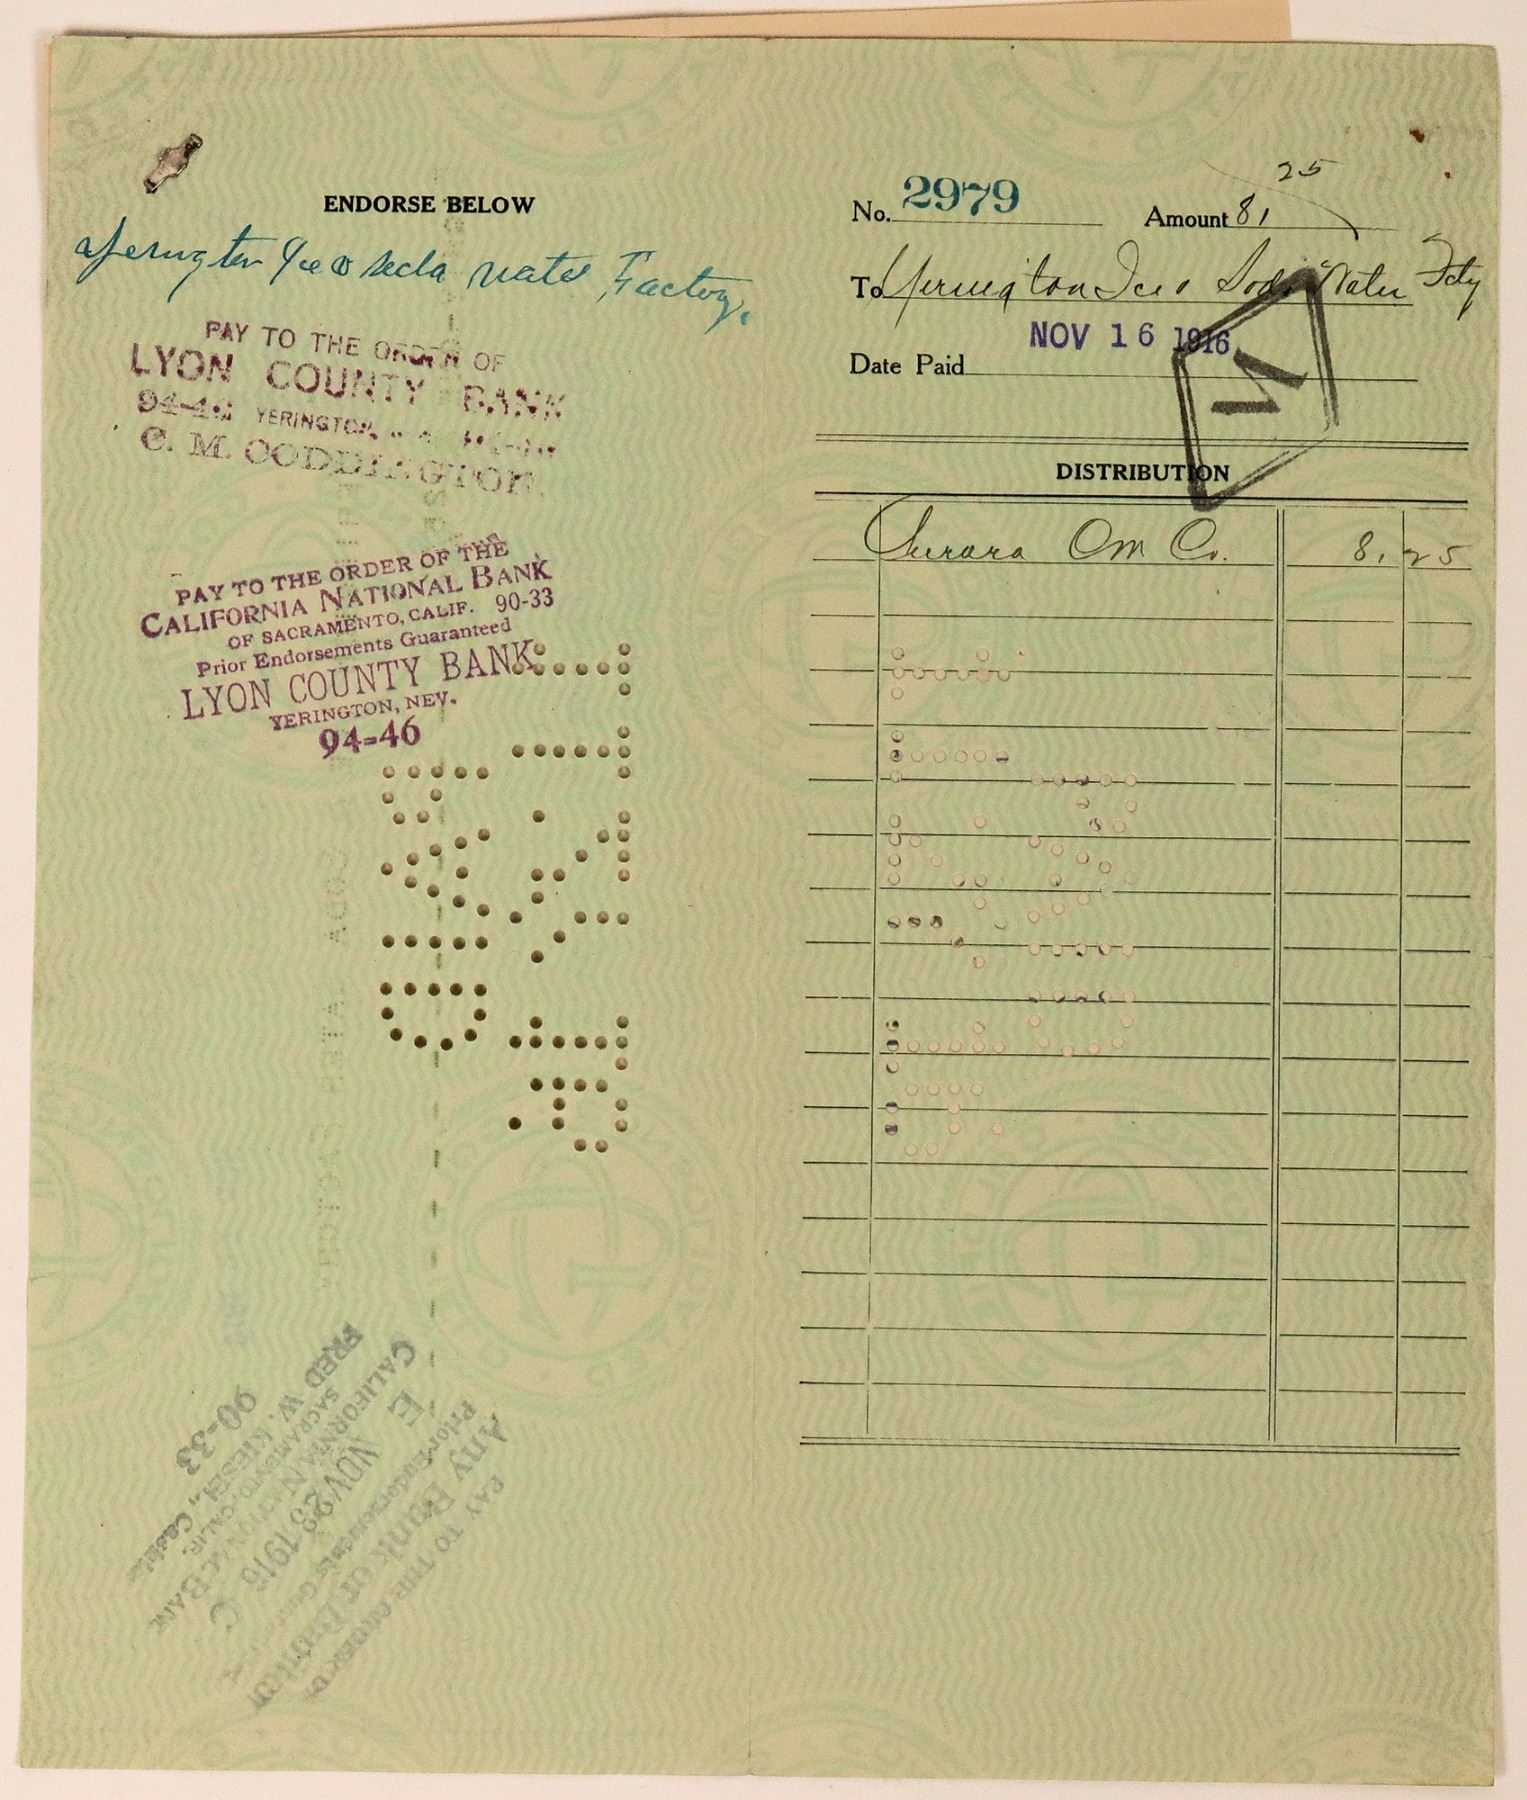 ENDORSE BELOW
Yerington Ice & Soda Water Factory.
PAY TO THE ORDER OF
LYON COUNTY BANK
94-46 YERINGTON,
C. M. CODDINGTON
PAY TO THE ORDER OF THE
CALIFORNIA NATIONAL BANK
OF SACRAMENTO, CALIF. 90-33
Prior Endorsements Guaranteed
LYON COUNTY BANK
YERINGTON, NEV.
94-46
PAID
PAY TO THE ORDER OF
Any Bank or Banker
Prior Endorsements
E NOV 23 1916 C
CALIFORNIA NATIONAL BANK
SACRAMENTO, CALIF.
FRED W. KIESEL, Cashier
90-33
No. 2979 Amount 81 25
To Yerington Ice & Soda Water Fcty
Date Paid NOV 16 1916
DISTRIBUTION
Aurora Cm Co. 81 25